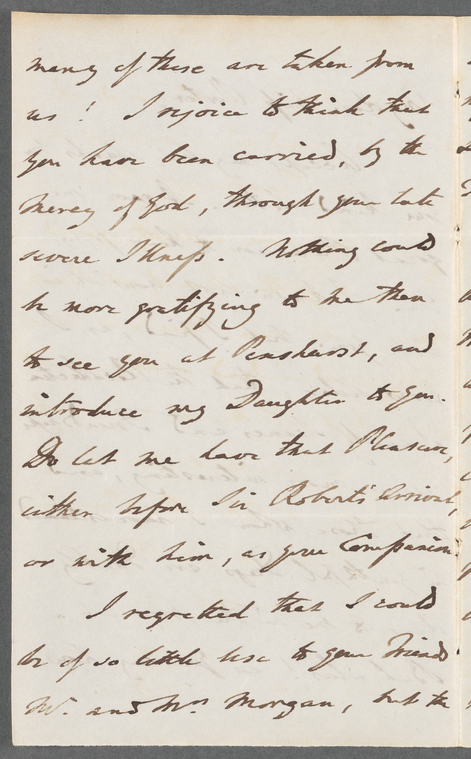 many of these are taken from
us! I rejoice to think that
you have been carried, by the
mercy of God, through your late
severe Illness. Nothing could
be more gratifying to me than
to see you at Penshurst, and
introduce my Daughter to you.
Do let me have that Pleasure,
either before Sir Robert's Arrival,
or with him, as your Companion.
I regretted that I could
be of so little use to your Friends
Mr. and Mrs Morgan, but the